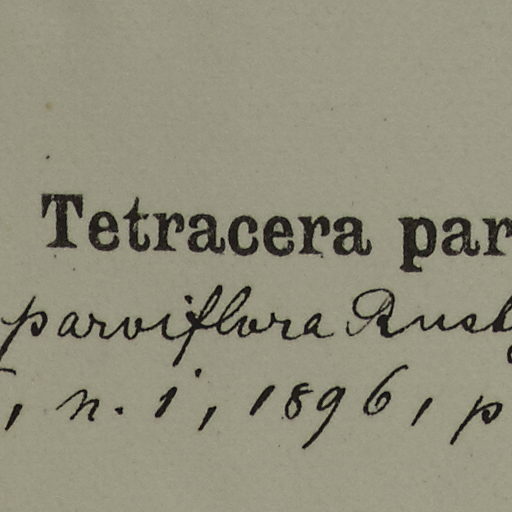 Tetracera par
parviflora Rusby
, n. i, 1896, p